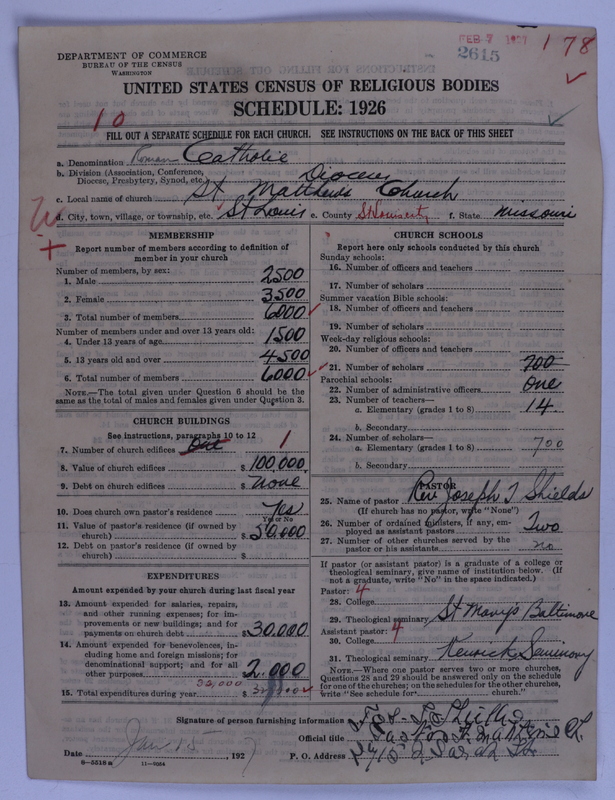 FEB 7 1927
2615
178
DEPARTMENT OF COMMERCE
BUREAU OF THE CENSUS
WASHINGTON
UNITED STATES CENSUS OF RELIGIOUS BODIES
SCHEDULE: 1926
10
FILL OUT A SEPARATE SCHEDULE FOR EACH CHURCH. SEE INSTRUCTIONS ON THE BACK OF THIS SHEET
a. Denomination Roman Catholic
b. Division (Association, Conference, Diocese, Presbytery, Synod, etc.) Diocese
c. Local name of church St Matthews Church
d. City, town, village, or township, etc. St Louis e. County St Louis city f. State Missouri
MEMBERSHIP
Report number of members according to definition of
member in your church
Number of members, by sex:
1. Male 2500
2. Female 3500
3. Total number of members 6000
Number of members under and over 13 years old:
4. Under 13 years of age 1500
5. 13 years old and over 4500
6. Total number of members 6000
NOTE.—The total given under Question 6 should be
same as the total of males and females given under Question 3.
CHURCH BUILDINGS
See instructions, paragraphs 10 to 12
7. Number of church edifices One 1
8. Value of church edifices $ 100,000
9. Debt on church edifices $ None
10. Does church own pastor's residence? Yes
Yes or No
11. Value of pastor's residence (if owned by
church) $ 50,000
12. Debt on pastor's residence (if owned by
church) $
EXPENDITURES
Amount expended by your church during last fiscal year
13. Amount expended for salaries, repairs,
and other running expenses; for im-
provements or new buildings; and for
payments on church debt $ 30.000
14. Amount expended for benevolences, in-
cluding home and foreign missions; for
denominational support; and for all
other purposes 2.000
32,000
15. Total expenditures during year $ 32,000
CHURCH SCHOOLS
Report here only schools conducted by this church
Sunday schools:
16. Number of officers and teachers
17. Number of scholars
Summer vacation Bible schools:
18. Number of officers and teachers
19. Number of scholars
Week-day religious schools:
20. Number of officers and teachers
21. Number of scholars 700
Parochial schools:
22. Number of administrative officers One
23. Number of teachers—
a. Elementary (grades 1 to 8) 14
b. Secondary
24. Number of scholars—
a. Elementary (grades 1 to 8) 700
b. Secondary
PASTOR
25. Name of pastor Rev Joseph T Shields
(If church has no pastor, write "None")
26. Number of ordained ministers, if any, em-
ployed as assistant pastors Two
27. Number of other churches served by the
pastor or his assistants no
If pastor (or assistant pastor) is a graduate of a college or
theological seminary, give name of institution below. (If
not a graduate, write "No" in the space indicated.)
Pastor: 4
28. College
29. Theological seminary St Marys Baltimore
Assistant pastor: 4
30. College
31. Theological seminary Kenrick Seminary
NOTE.—Where one pastor serves two or more churches,
Questions 28 and 29 should be answered only on the schedule
for one of the churches; on the schedules for the other churches,
write "See schedule for church."
Signature of person furnishing information
Official title Pastor
Date Jan 15, 1927 P. O. Address
8—5518a 11—9054